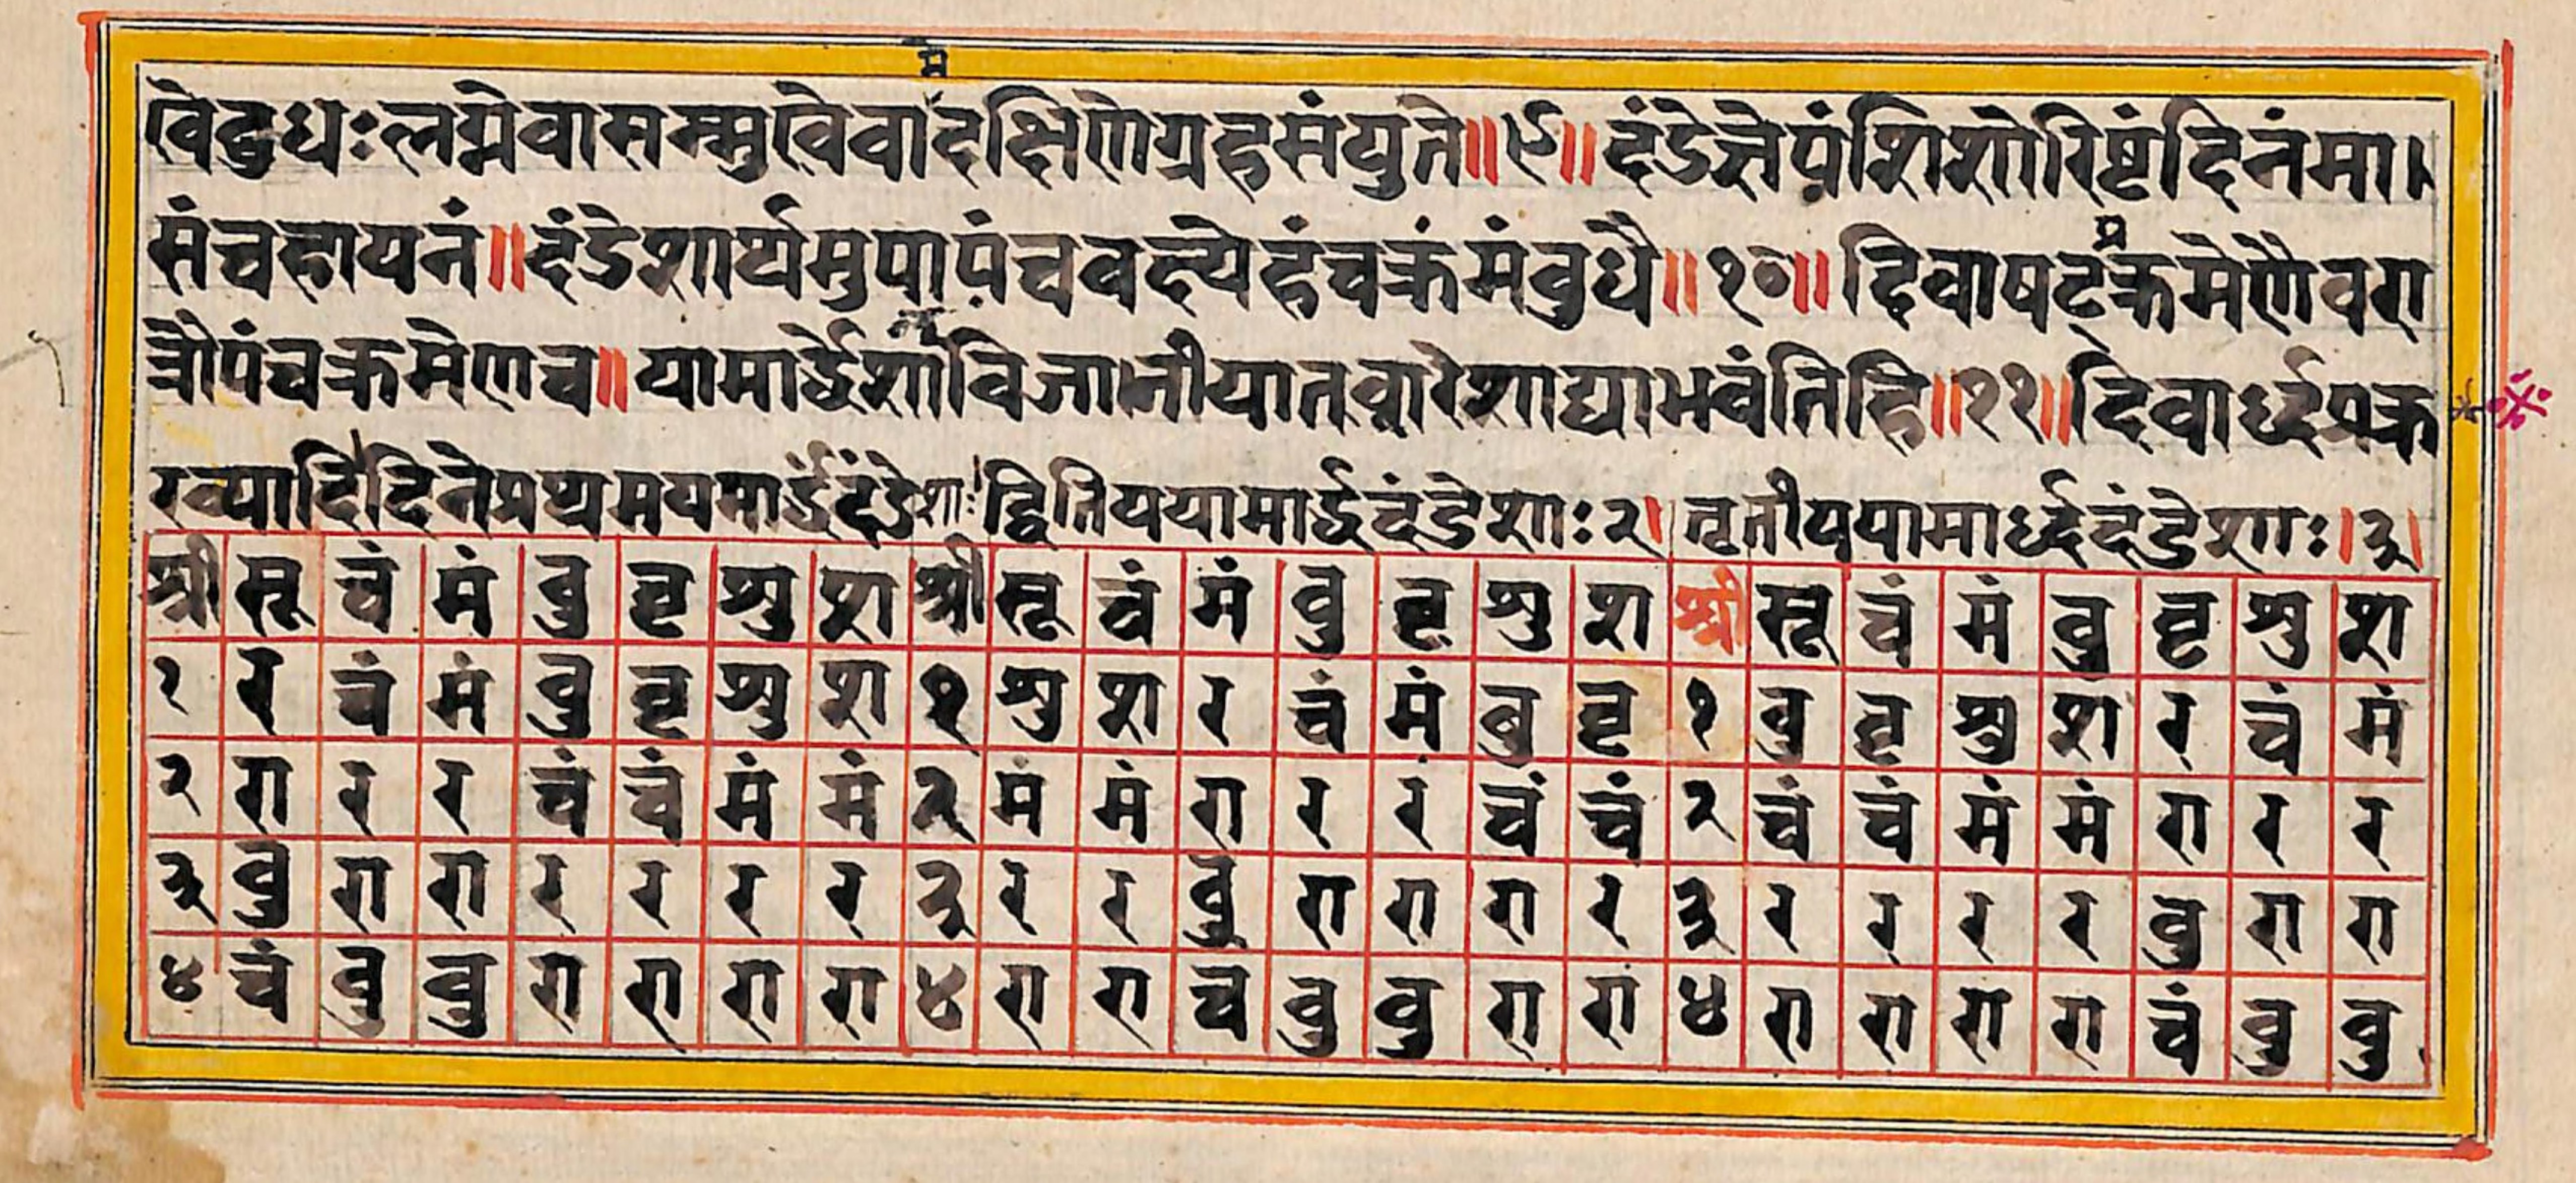 म
खेद्बुधः लग्नेवासमुखेवादक्षिणेग्रहसंयुते॥९॥दंडेज्ञेपंशिशोरिष्टंदिनंमा।
संचहायनं॥दंडेशार्थमुपापंचवक्ष्येहंचक्रमंबुधै॥१०॥दिवाषट्क्रमेणैवरा
त्रौपंचक्रमेणच॥यामार्द्धेशांविजानीयात्वारेशाद्याभवंतिहि॥११॥दिवार्ध्दप्रक्र
रव्यादिदिनेप्रथमयमार्द्धदंडेशाः।द्वितिययामार्द्धदंडेशाः२।तृतीययामार्ध्ददंडेशाः।३।
श्री सू चं मं बु बृ शु श श्री सू चं मं बु बृ शु श श्री सू चं मं बु बृ शु श
१ र चं मं बु बृ शु श १ शु श र चं मं बु बृ १ बु बृ शु श र चं मं
२ रा र र चं चं मं मं २ मं मं रा र र चं चं २ चं चं मं मं रा र र
३ बु रा रा र र र र ३ र र बु रा रा रा र ३ र र र र बु रा रा
४ चं बु बु रा रा रा रा ४ रा रा चं बु बु रा रा ४ रा रा रा रा चं बु बु